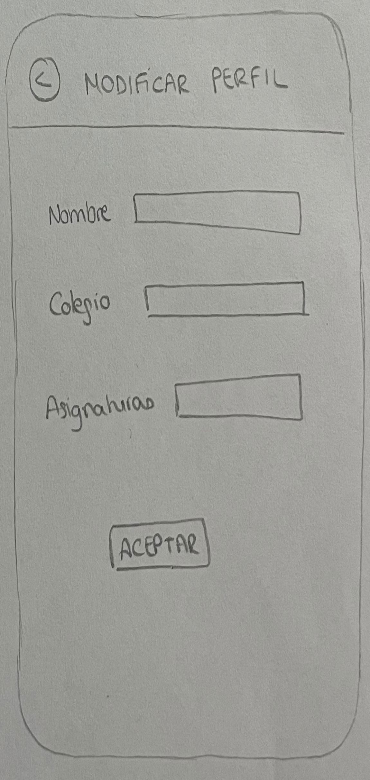 < MODIFICAR PERFIL
Nombre
Colegio
Asignaturas
ACEPTAR